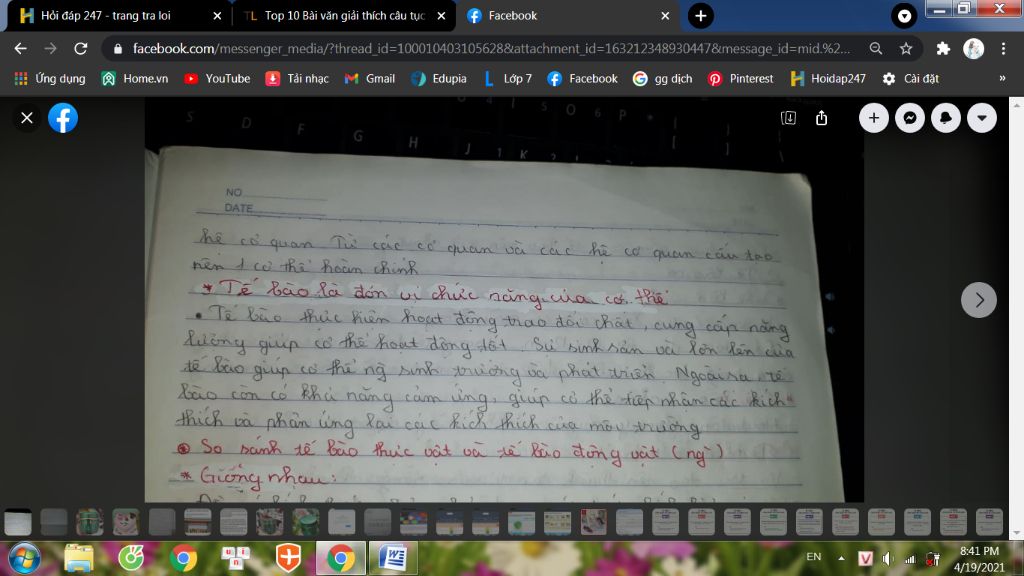 Hỏi đáp 247 - trang tra loi
Top 10 Bài văn giải thích câu tục
Facebook
facebook.com/messenger_media/?thread_id=100010403105628&attachment_id=163212348930447&message_id=mid.%2...
Ứng dụng
Home.vn
YouTube
Tải nhạc
Gmail
Edupia
Lớp 7
Facebook
gg dịch
Pinterest
Hoidap247
Cài đặt
»
S D F G H J K
NO
DATE
hệ cơ quan. Từ các cơ quan và các hệ cơ quan cấu tạo
nên 1 cơ thể hoàn chỉnh
* Tế bào là đơn vị chức năng của cơ thể
• Tế bào thực hiện hoạt động trao đổi chất, cung cấp năng
lượng giúp cơ thể hoạt động tốt. Sự sinh sản và lớn lên của
tế bào giúp cơ thể ng̀ sinh trưởng và phát triển. Ngoài ra tế
bào còn có khả năng cảm ứng, giúp cơ thể tiếp nhận các kích
thích và phản ứng lại các kích thích của môi trường
So sánh tế bào thực vật và tế bào động vật (ng̀)
* Giống nhau:
EN
8:41 PM
4/19/2021